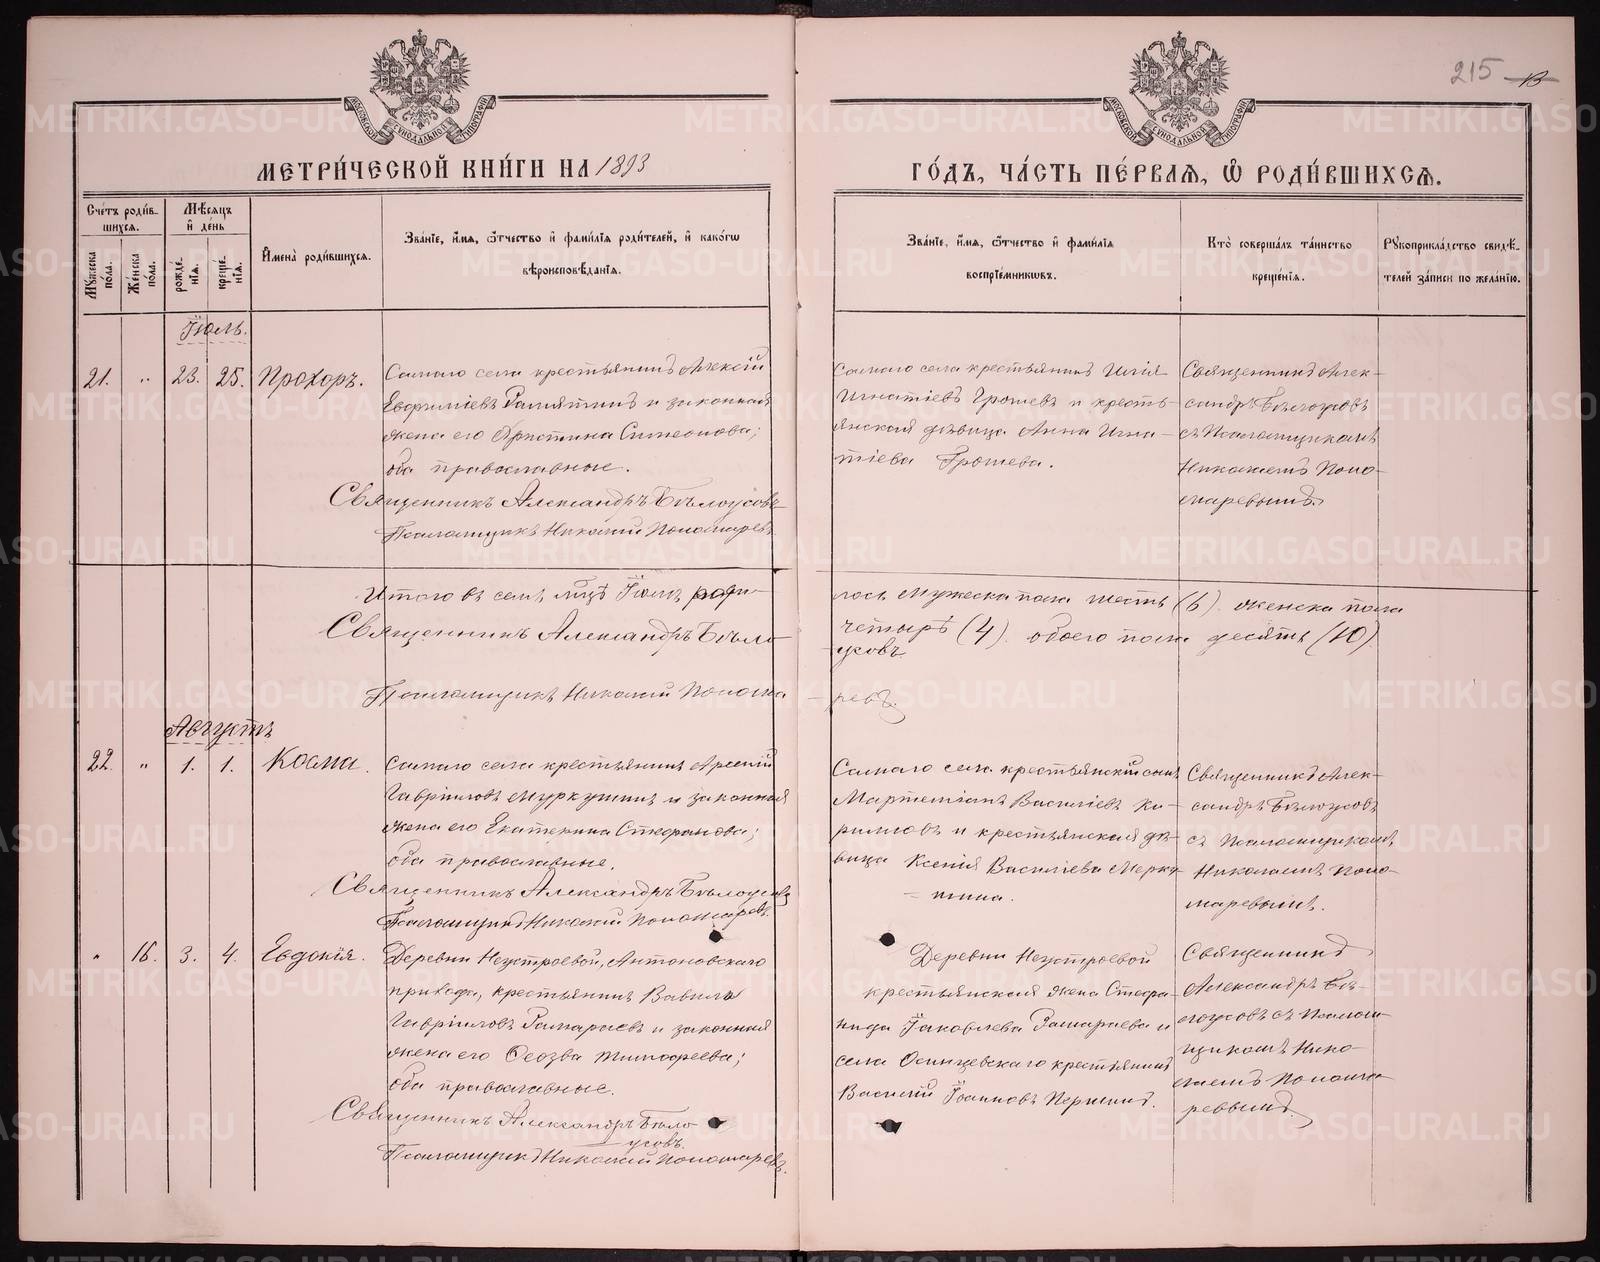 215
МЕТРИ́ЧЕСКОЙ КНИ́ГИ НА 1893
ГО́ДЪ, ЧА́СТЬ ПЕ́РВАЯ, Ѽ РОДИ́ВШИХСЯ.
МОСКОВСКОЙ СѴНОДАЛЬНОЙ ТИПОГРАФІИ
МОСКОВСКОЙ СѴНОДАЛЬНОЙ ТИПОГРАФІИ
Сче́тъ роди́в-
шихся.
Мѣсяцъ
и҆ де́нь
Мужеска
по́ла.
Же́нска
по́ла.
рожде́-
нїѧ.
креще́-
нїѧ.
И҆мена̀ роди́вшихся.
Зва́нїе, и҆́мѧ, ѻ҆́тчество и҆ фами́лїѧ роди́телей, и҆ како́гѡ
вѣроисповѣ́данїѧ.
Зва́нїе, и҆́мѧ, ѻ҆́тчество и҆ фами́лїѧ
воспрїе́мниковъ.
Кто̀ соверша́лъ та́инство
креще́нїѧ.
Рукоприкла́дство свидѣ́-
телей за́писи по жела́нїю.
Іюль.
21. " 23. 25. Прохоръ.
Самаго села крестьянинъ Алексій
Евфиміевъ и законная
жена его Христина Симеонова;
оба православные.
Священникъ Александръ Бѣлоусовъ
Псаломщикъ Николай Пономаревъ
Самаго села крестьянинъ Илія
Игнатіевъ Грошевъ и кресть-
янская дѣвица Анна Игна-
тіева Грошева.
Священникъ Алек-
сандръ Бѣлоусовъ
съ Псаломщикомъ
Николаемъ Поно-
маревымъ.
Итого въ семъ мцѣ Іюлѣ роди-
лось мужеска пола шесть (6). женска пола
Священникъ Александръ Бѣло-
четырѣ (4). обоего пола десять (10)
усовъ
Псаломщикъ Николай Понома-
ревъ.
Августъ
22. " 1. 1. Косма.
Самаго села крестьянинъ Арсеній
Гавріиловъ Меркушинъ и законная
жена его Екатерина Стефанова;
оба православные.
Священникъ Александръ Бѣлоусовъ
Псаломщикъ Николай Пономаревъ.
Самаго села крестьянскій сынъ
Мартеміанъ Василіевъ Ки-
рилловъ и крестьянская дѣ-
вица Ксенія Василіева Мерку-
шина.
Священникъ Алек-
сандръ Бѣлоусовъ
съ Псаломщикомъ
Николаемъ Поно-
маревымъ.
" 16. 3. 4. Евдокія.
Деревни Неустроевой, Антоновскаго
прихода, крестьянинъ Вавила
Гавріиловъ и законная
жена его Ѳеозва Тимофеева;
оба православные.
Священникъ Александръ Бѣло-
усовъ.
Псаломщикъ Николай Пономаревъ.
Деревни Неустроевой
крестьянская жена Стефа-
нида Іаковлева и
села Осинцевскаго крестьянинъ
Василій Іоанновъ Першинъ.
Священникъ
Александръ Бѣ-
лоусовъ съ Псалом-
щикомъ Нико-
лаемъ Понома-
ревымъ.
METRIKI.GASO-URAL.RU